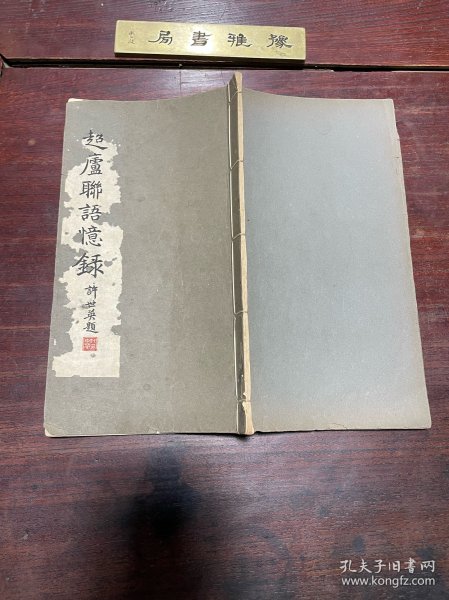 豫雅書局
超廬聯語憶錄
許世英題
孔夫子旧书网
www.kongfz.com